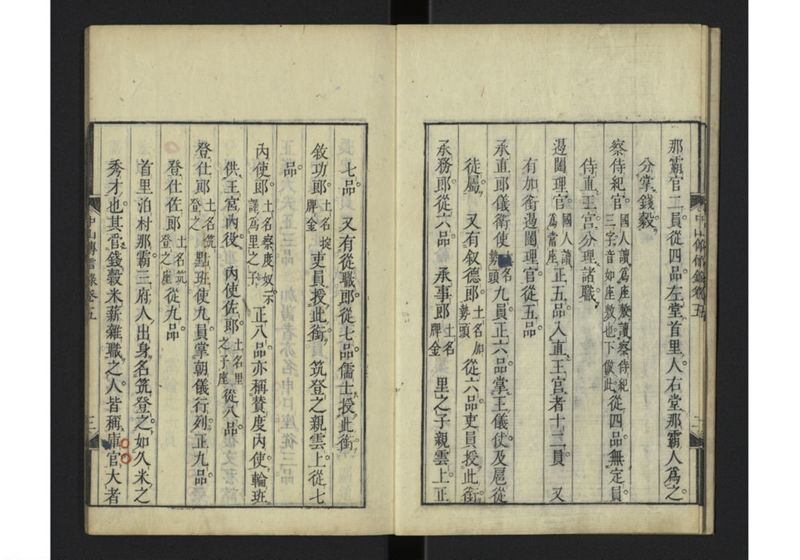 中山傳信錄卷五
那霸官二員從四品左堂首里人右堂那霸人爲之
分掌錢穀
察侍紀官國人讀爲座敷讀察侍紀三字音如座敷也下倣此從四品無定員
侍直王宮分理諸職
邊闥理官國人讀爲當座正五品入直王宮者十三員 又
有加銜邊闥理官從五品
承直郎儀衛使名勢頭九員正六品掌王儀仗及扈從
徒屬 又有叙德郎土名加勢頭從六品吏員授此銜
承務郎從六品 承事郎土名牌金 里之子親雲上正
七品 又有從職郎從七品儒士授此銜
敘功郎土名掟牌金吏員授此銜 筑登之親雲上從七
品
內使郎土名察度奴示譯爲里之子正八品亦稱贊度內使輪班
供王宮內役 內使佐郎土名里之子座從八品
登仕郎土名筑登之點班使九員掌朝儀行列正九品
登仕佐郎土名筑登之座從九品
首里泊村那霸三府人出身名筑登之如久米之
秀才也其晉錢穀米薪雜職之人皆稱庫官大者
中山傳信錄卷五